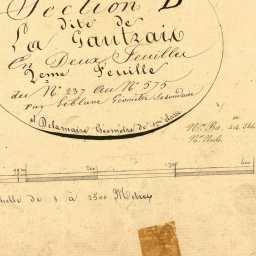 Section B
dite de
La Gautrais
En Deux Feuilles
2eme Feuille
du N° 237 au N° 575
par Leblanc Géomètre Secondaire
et Delamaire Géomètre de 1ere classe
Echelle de 1 à 2500 Mètres